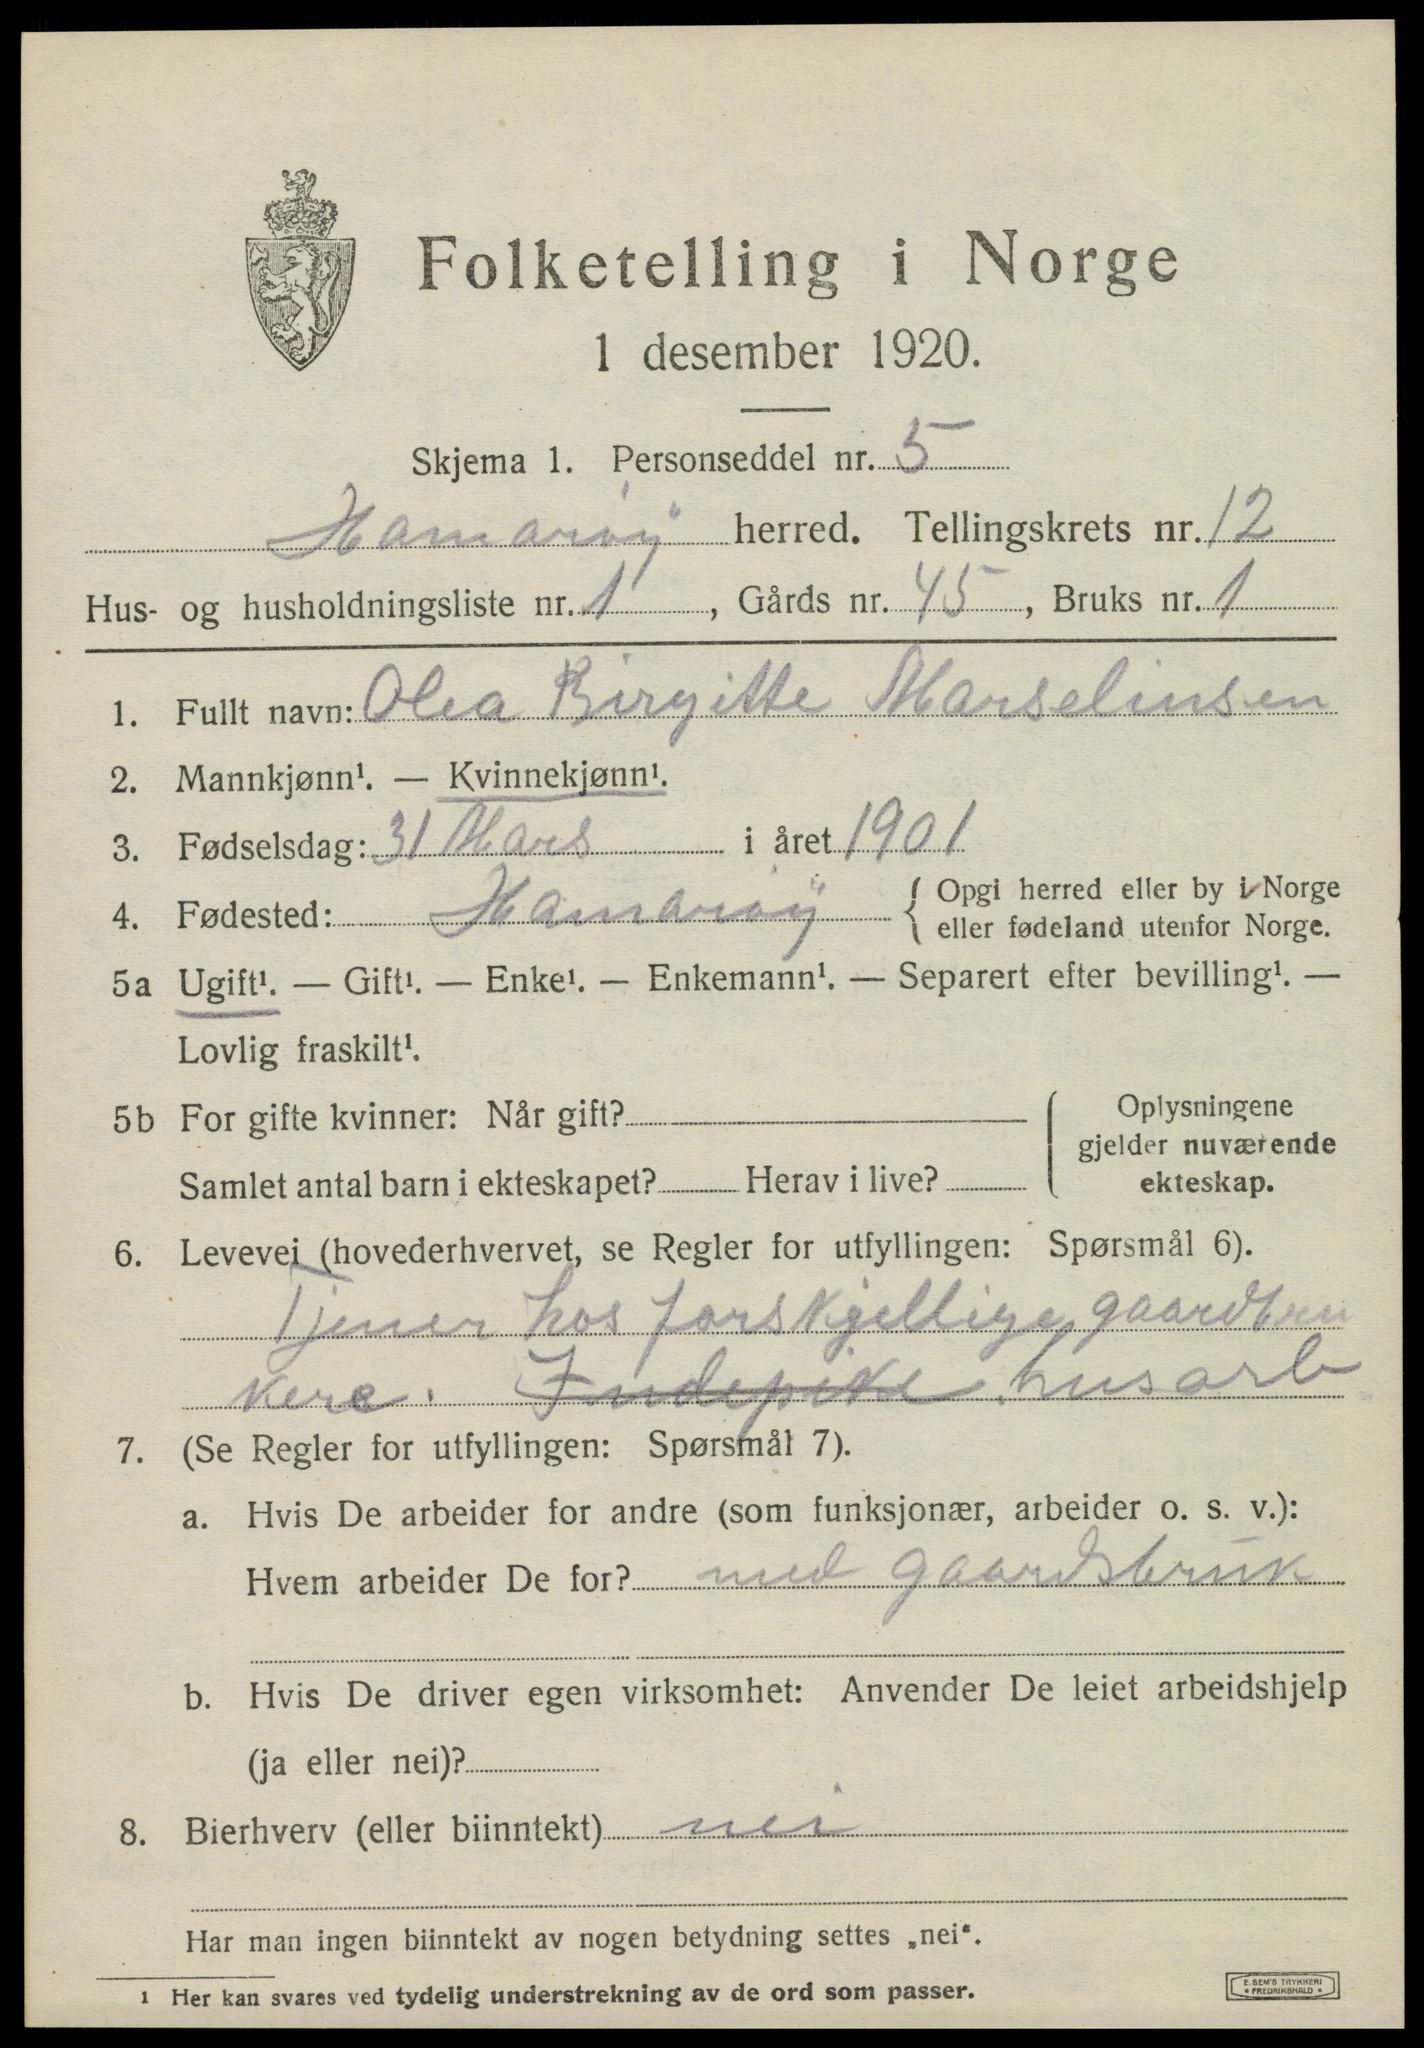 Folketelling i Norge
1 desember 1920.
Skjema 1. Personseddel nr. 5
Hamarøy herred. Tellingskrets nr. 12
Hus- og husholdningsliste nr. 1, Gårds nr. 45, Bruks nr. 1
1. Fullt navn: Olea Birgitte Marselinsen
2. Mannkjønn¹. — Kvinnekjønn¹.
3. Fødselsdag: 31 Mars i året 1901
4. Fødested: Hamarøy { Opgi herred eller by i Norge
eller fødeland utenfor Norge.
5a Ugift¹. — Gift¹. — Enke¹. — Enkemann¹. — Separert efter bevilling¹. —
Lovlig fraskilt¹.
5b For gifte kvinner: Når gift?
Samlet antal barn i ekteskapet? Herav i live?
Oplysningene
gjelder nuværende
ekteskap.
6. Levevei (hovederhvervet, se Regler for utfyllingen: Spørsmål 6).
Tjener hos forskjellige gaardbru
kere. Indepike husarb
7. (Se Regler for utfyllingen: Spørsmål 7).
a. Hvis De arbeider for andre (som funksjonær, arbeider o. s. v.):
Hvem arbeider De for? med gaardsbruk
b. Hvis De driver egen virksomhet: Anvender De leiet arbeidshjelp
(ja eller nei)?
8. Bierhverv (eller biinntekt) nei
Har man ingen biinntekt av nogen betydning settes „nei“.
1 Her kan svares ved tydelig understrekning av de ord som passer.
E. SEM'S TRYKKERI
• FREDRIKSHALD •